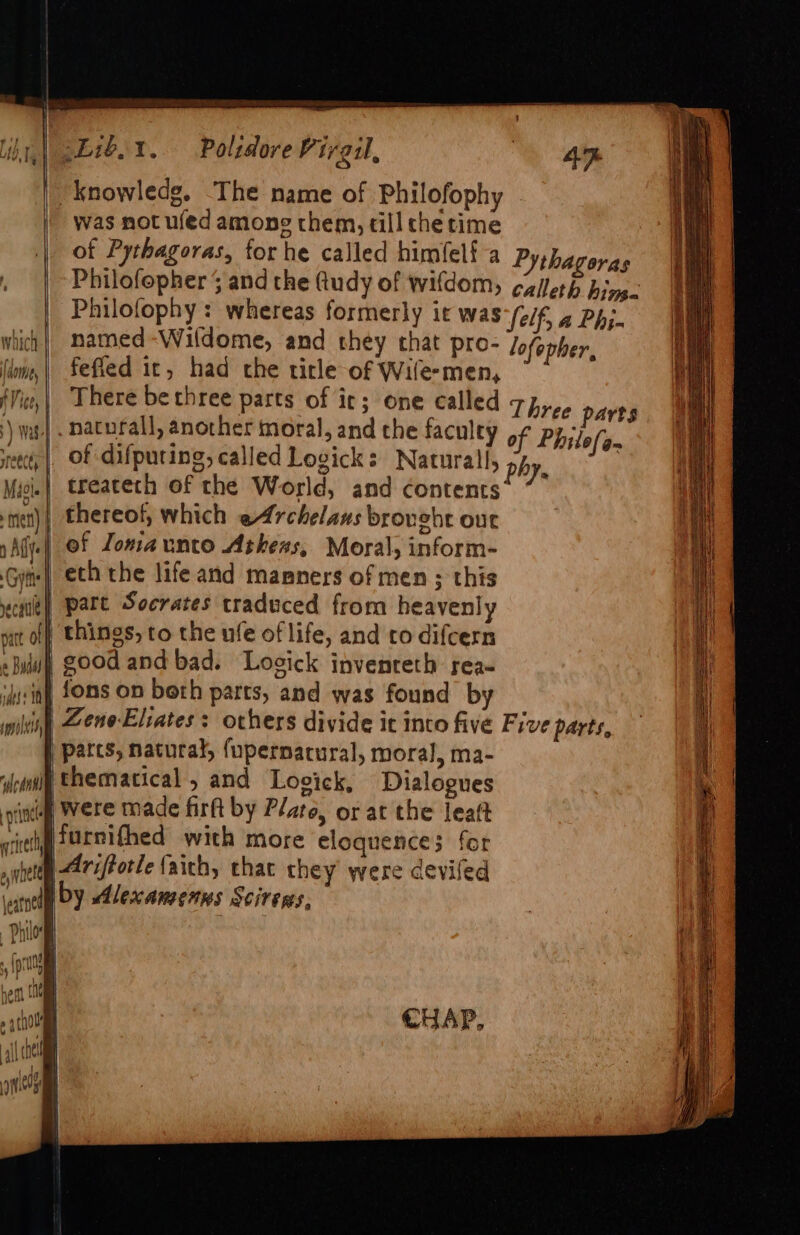 Lib. 1. Polidore Virgil, 47
knowledg. The name of Philoſophy
was not uſed among them, till the time
of Pythagoras, for he called himſelf a
Philoſopher; and the ſtudy of wiſdom,
Philoſophy: whereas formerly it was
named Wiſdome, and they that pro-
feſſed it, had the title of Wiſe-men,
There be three parts of it; one called
naturall, another moral, and the faculty
of diſputing, called Logick: Naturall,
treateth of the World, and contents
thereof, which Archelaus brought out
of Ionia unto Athens, Moral, inform-
eth the life and manners of men; this
part Socrates traduced from heavenly
things, to the uſe of life, and to diſcern
good and bad. Logick inventeth rea-
ſons on both parts, and was found by
Zeno Eliates: others divide it into five
parts, natural, ſupernatural, moral, ma-
thematical, and Logick, Dialogues
were made firſt by Plato, or at the leaſt
furniſhed with more eloquence; for
Ariſtotle ſaith, that they were deviſed
by Alexamenus Scireus,
Pythagoras
calleth him-
ſelf, a Phi-
loſopher,
Three parts
of Philoſo-
phy.
Five parts,
CHAP,